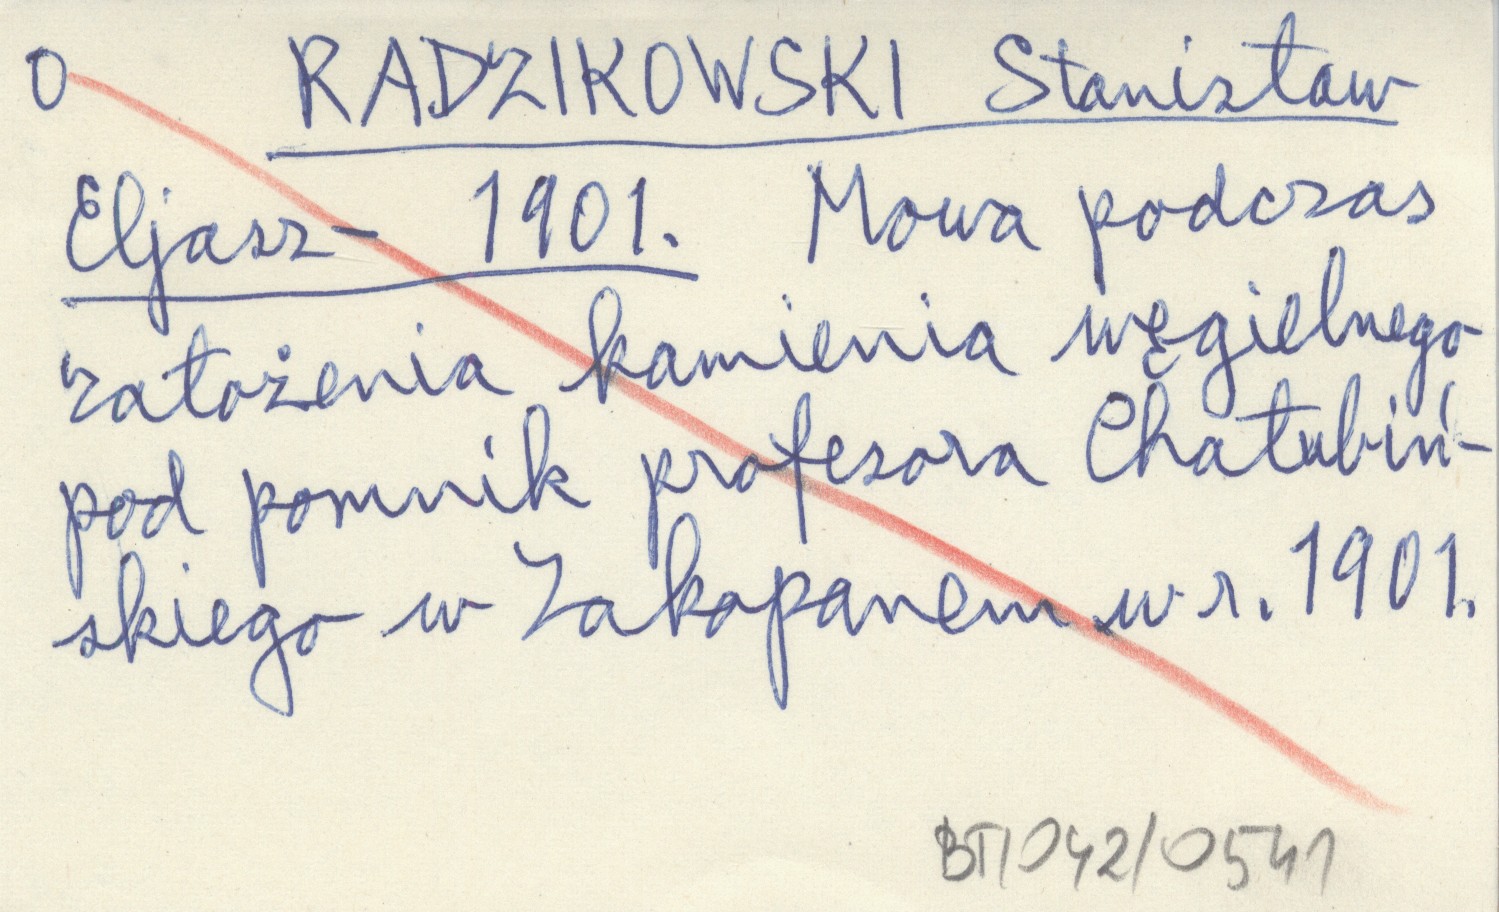 O RADZIKOWSKI Stanisław
Eljasz- 1901. Mowa podczas
założenia kamienia węgielnego
pod pomnik profesora Chałubiń-
skiego w Zakopanem w r. 1901.
BT/042/0541